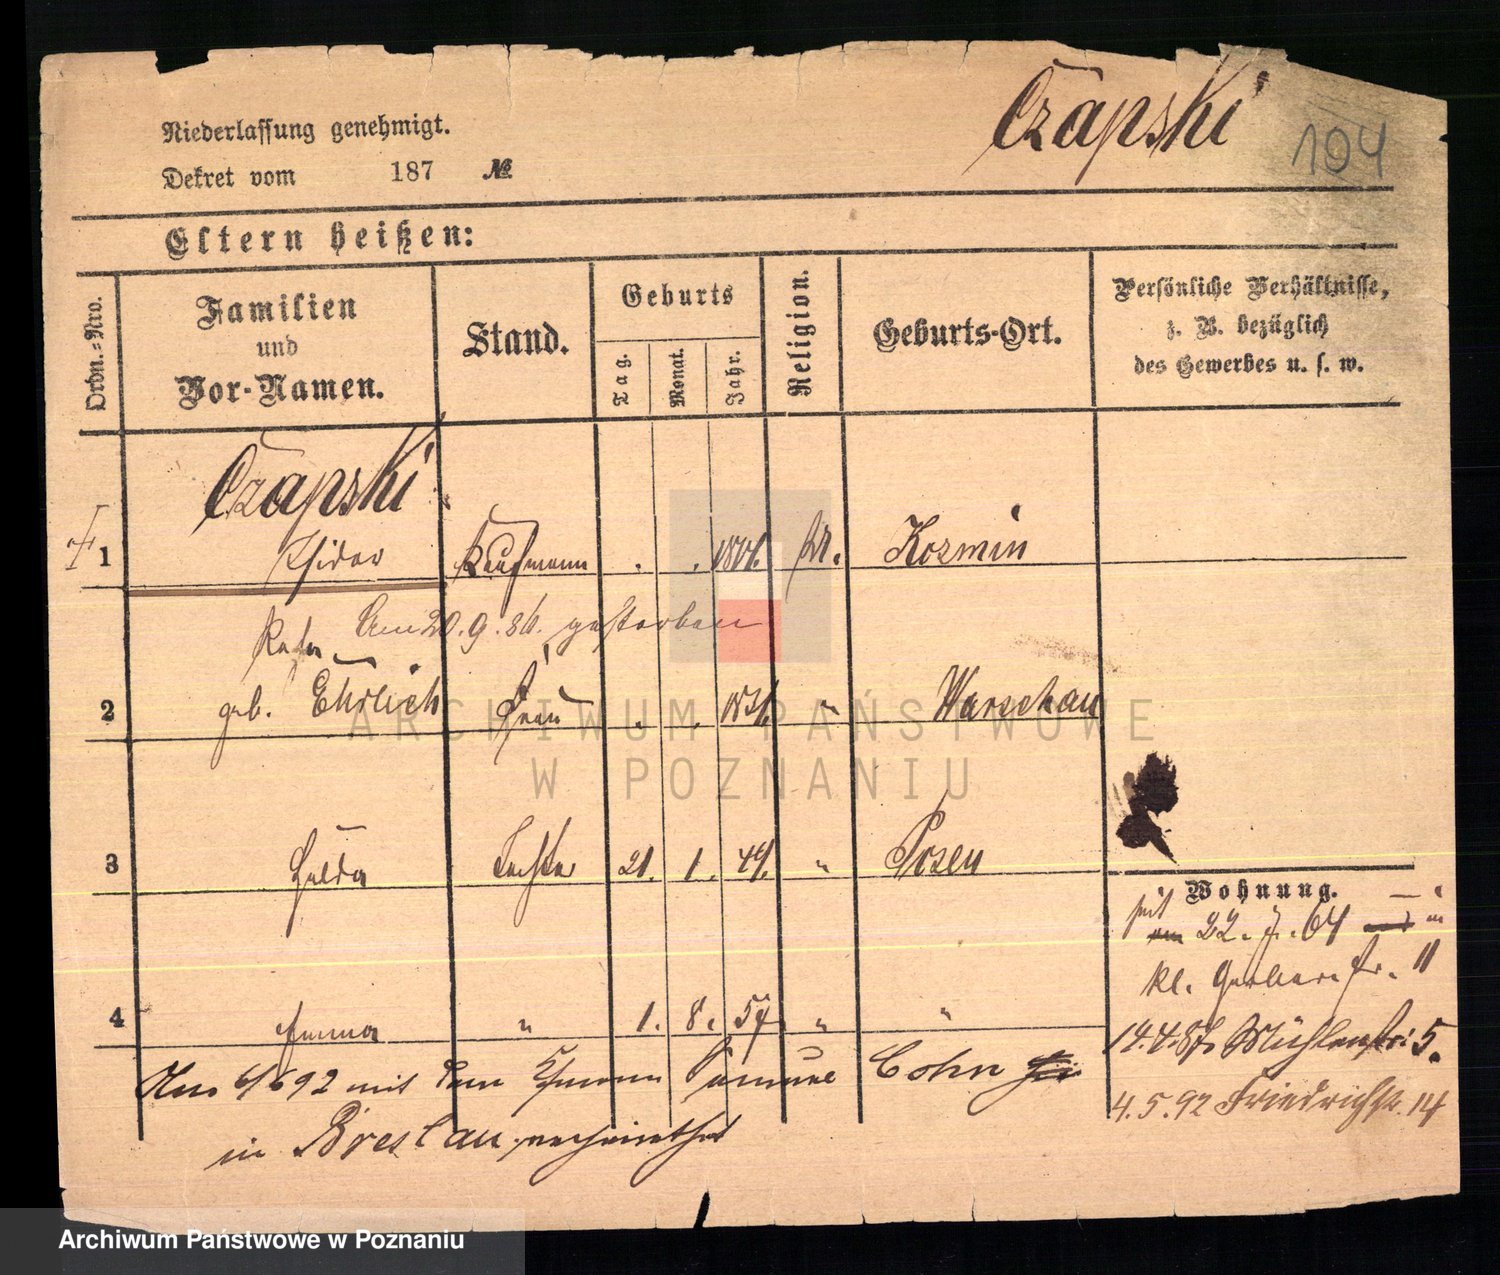 Czapski
194
Niederlassung genehmigt.
Dekret vom 187 №
Eltern heißen:
Ordn.=Nro.
Familien
und
Vor-Namen.
Stand.
Geburts
Tag.
Monat.
Jahr.
Religion.
Geburts-Ort.
Persönliche Verhältnisse,
z. B. bezüglich
des Gewerbes u. s. w.
Czapski
1 Isidor Kaufmann . . M. Kozmin
Am 20.9.86. gestorben
2 geb. Ehrlich Frau . . " Warschau
3 Hulda Tochter 21. 1. 49. " Posen
Wohnung.
seit 22. 7. 64 in
kl. Gerberstr. 11
4 Emma " 1. 8. 54 " "
14.4.87. Mühlenstr: 5.
mit dem Samuel Cohn
4.5.92 Friedrichstr. 14
in Breslau verheirathet
ARCHIWUM PAŃSTWOWE
W POZNANIU
Archiwum Państwowe w Poznaniu